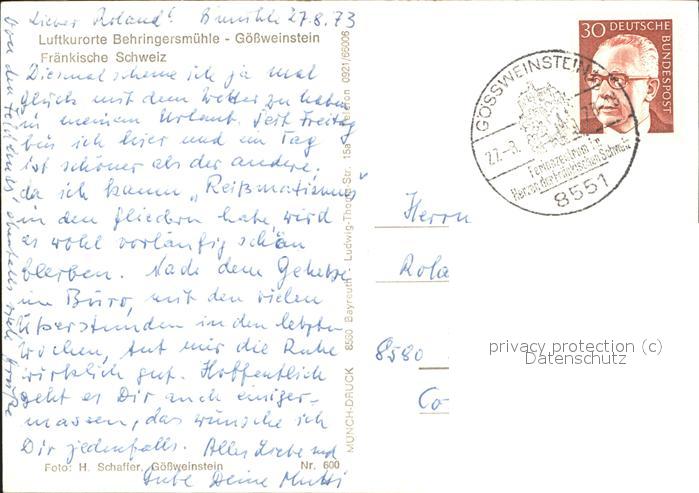 Lieber Roland! B'mühle 27.8.73
Luftkurorte Behringersmühle - Gößweinstein
Fränkische Schweiz
Diesmal scheine ich ja mal
Glück mit dem Wetter zu haben
in meinem Urlaub. Seit Freitag
bin ich hier und ein Tag
ist schöner als der andere,
da ich kaum "Reißmatismus"
in den Gliedern habe, wird
es wohl vorläufig schön
bleiben. Nach dem Gehetze
im Büro, mit den vielen
Überstunden in den letzten
Wochen, tut mir die Ruhe
wirklich gut. Hoffentlich
geht es Dir auch einiger-
massen, das wünsche ich
Dir jedenfalls. Alles Liebe und
Gute Deine Mutti
Von den
ebenfalls viele Grüße
Foto: H. Schaffer, Gößweinstein Nr. 600
MÜNCH-DRUCK 8580 Bayreuth - Ludwig-Thoma-Str. 15a Telefon 0921/66006
30 DEUTSCHE
BUNDESPOST
GÖSSWEINSTEIN
27.-8.
Ferienzentrum im
Herzen der Fränkischen Schweiz
8551
Herrn
Rola
8580
Co
privacy protection (c)
Datenschutz